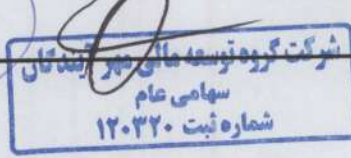 شرکت گروه توسعه مالی مهر آیندگان
سهامی عام
شماره ثبت ۱۲۰۳۲۰